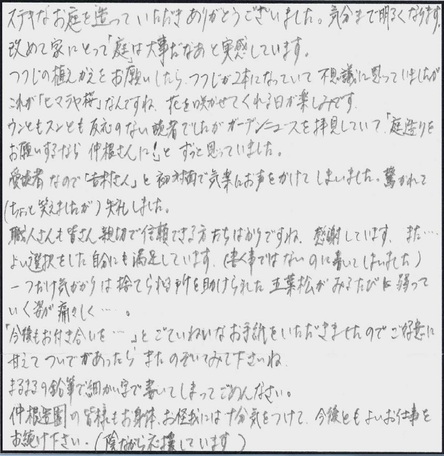 ステキなお庭を造っていただきありがとうございました。気分まで明るくなります。
改めて家にとって「庭」は大事だなあと実感しています。
つつじの植えかえをお願いしたら、つつじが2本になっていて不思議に思っていましたが
これが「ヒマラヤ桜」なんですね。花を咲かせてくれる日が楽しみです。
ウンともスンとも反応のない読者でしたがガーデンニュースを拝見していて「庭造りを
お願いするなら仲根さんに!」とずっと思っていました。
愛読者なので「吉村さん」と初対面で気楽にお声をかけてしまいました。驚かれて
(ちょっと笑えましたが)失礼しました。
職人さんも皆さん親切で信頼できる方たちばかりですね。感謝しています。また…
よい選択をした自分にも満足しています。(書く事ではないのに書いてしまいました)
一つだけ気がかりは捨てられる所を助けられた五葉松がみるたびに弱って
いく姿が痛々しく…。
「今後もお付き合いを…。」とごていねいなお手紙をいただきましたのでご好意に
甘えてついでがあったらまたのぞいてみて下さいね。
まるまるの鉛筆で細かい字で書いてしまってごめんなさい。
仲根造園の皆様もお身体、お怪我には十分気をつけて、今後ともよいお仕事を
お続け下さい。(陰ながら応援しています)